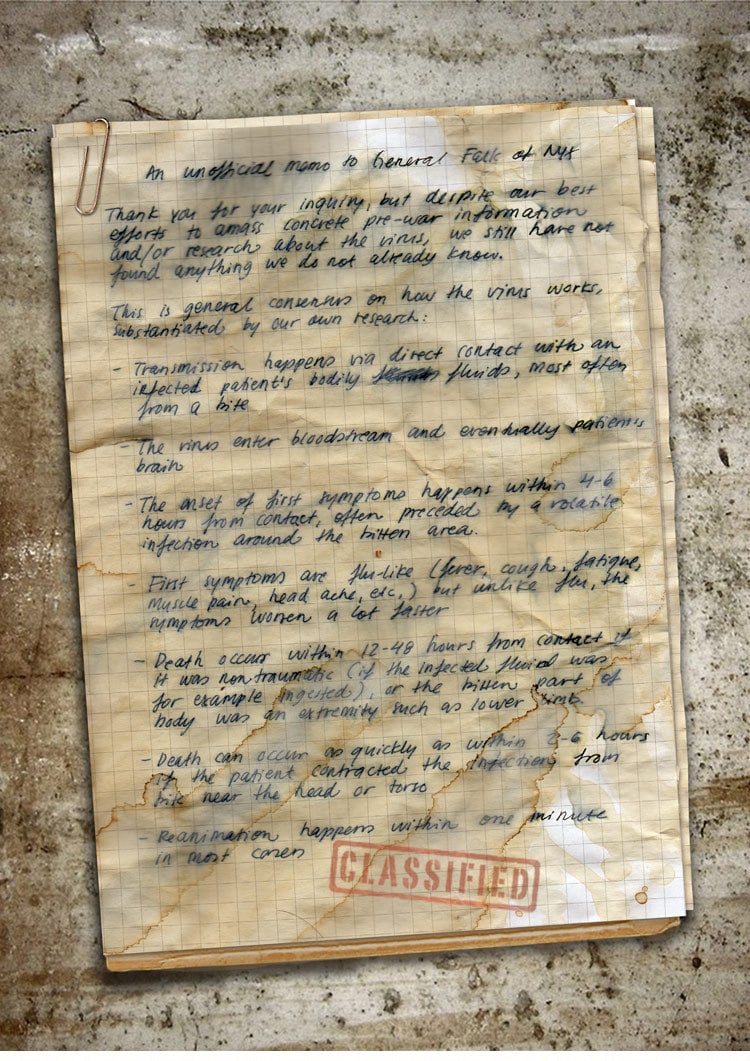 An unofficial memo to General Falk of NYX
Thank you for your inquiry, but despite our best
efforts to amass concrete pre-war information
and/or research about the virus, we still have not
found anything we do not already know.
This is general consensus on how the virus works,
substantiated by our own research:
- Transmission happens via direct contact with an
infected patient's bodily fluids, most often
from a bite
- The virus enter bloodstream and eventually patient's
brain
- The onset of first symptoms happens within 4-6
hours from contact, often preceded by a volatile
infection around the bitten area.
- First symptoms are flu-like (fever, cough, fatigue,
muscle pain, head ache, etc.) but unlike flu, the
symptoms worsen a lot faster
- Death occurs within 12-48 hours from contact if
it was nontraumatic (if the infected fluid was
for example ingested), or the bitten part of
body was an extremity such as lower limb.
- Death can occur as quickly as within 2-6 hours
if the patient contracted the infection from
bite near the head or torso
- Reanimation happens within one minute
in most cases
CLASSIFIED